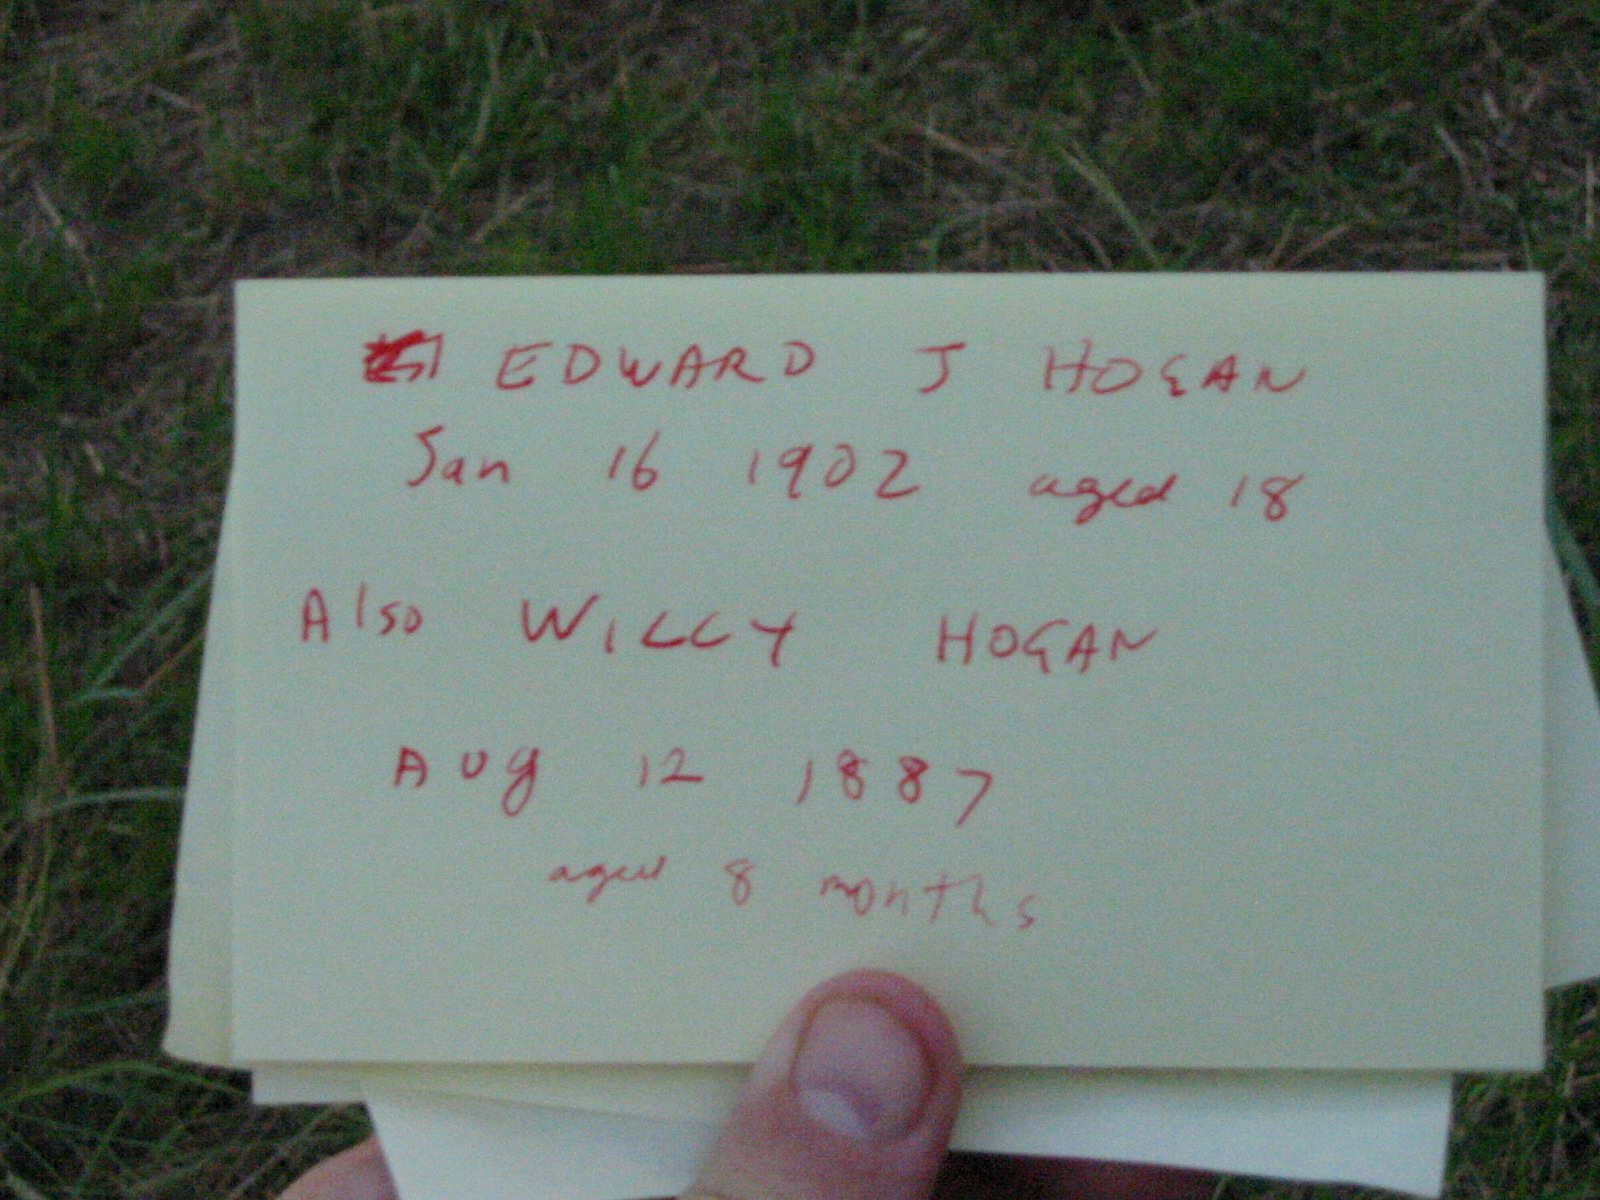 EDWARD J HOGAN
Jan 16 1902 aged 18
Also WILLY HOGAN
Aug 12 1887
aged 8 months